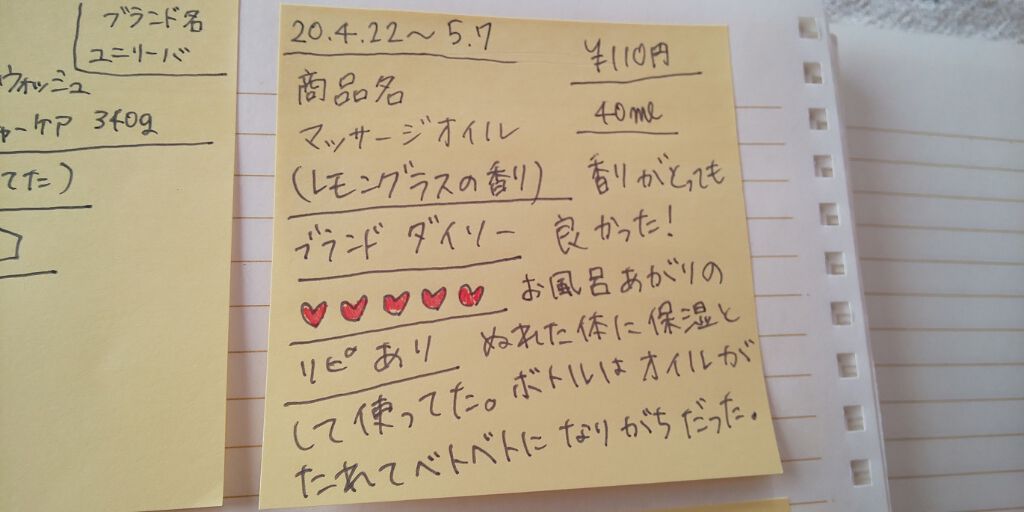 ブランド名
ユニリーバ
ウォッシュ
ケア 340g
てた)
20.4.22〜5.7
¥110円
商品名
40ml
マッサージオイル
(レモングラスの香り)
香りがとっても
良かった!
ブランド ダイソー
お風呂あがりの
ぬれた体に保湿と
リピあり
して使ってた。ボトルはオイルが
たれてベトベトになりがちだった。